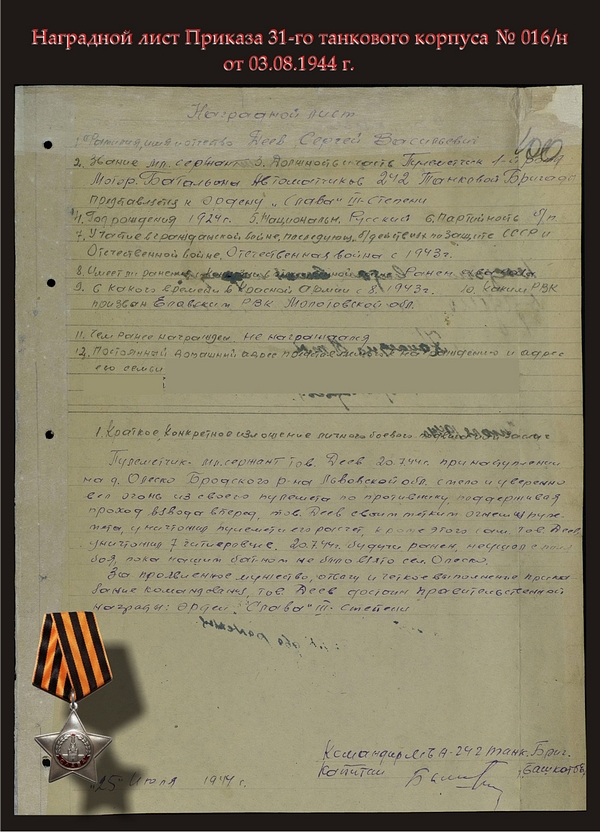 Наградной лист Приказа 31-го танкового корпуса № 016/н
от 03.08.1944 г.
Наградной лист
400
1. Фамилия, имя и отчество Деев Сергей Васильевич
2. Звание мл. сержант 3. Должность и часть Пулеметчик 1-й роты
Мотор. Батальона Автоматчиков 242 Танковой Бригады
представляется к Ордену "Слава" III-Степени
4. Год рождения 1924г. 5. Национальн. Русский 6. Партийность б/п
7. Участие в гражданской войне, последующ. б/действиях по защите СССР и
Отечественной войне, Отечественная война с 1943г.
8. Имеет ли ранения Ранен
9. С какого времени в Красной Армии с 8. 1943г. 10. Каким РВК
призван Еловским РВК Молотовской обл.
11. Чем ранее награжден не награждался
12. Постоянный домашний адрес и адрес
его семьи
1. Краткое конкретное изложение личного боевого
Пулеметчик мл. сержант тов. Деев 20.7.44г. при наступлении
на д. Олеско Бродского р-на Львовской обл. смело и уверенно
вел огонь из своего пулемета по противнику, поддерживая
проход взвода вперед. тов. Деев своим метким огнем из пуле-
мета, уничтожил пулемет и его расчет, кроме этого сам тов. Деев
уничтожил 7 гитлеровцев. 20.7.44г. будучи ранен, не ушел с поля
боя, пока нашим бат-ном не было взято сел. Олеско.
За проявленное мужество, отвагу и четкое выполнение приказа-
ние командования, тов. Деев достоин Правительственной
награды: орден "Слава" III-степени
Командир МБА-242 танк. Бриг.
Капитан
"25" Июля 1944г.